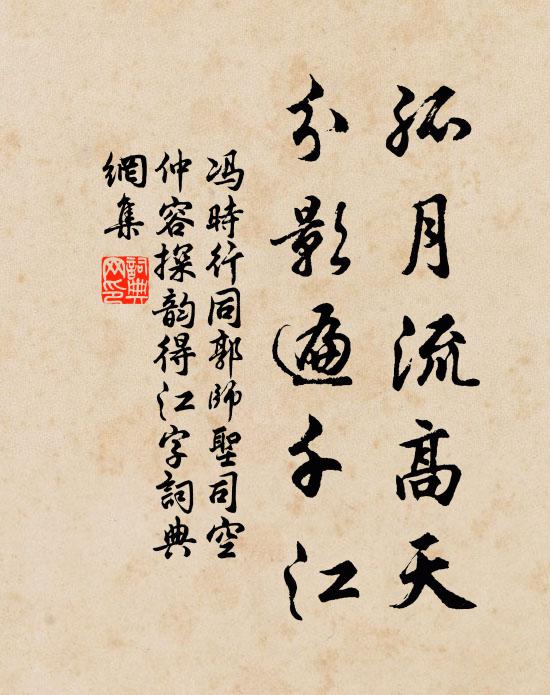 孤月流高天
分影遍千江
冯時行同郭師聖司空
仲容探韵得江字詞典
網集
詞典
网印